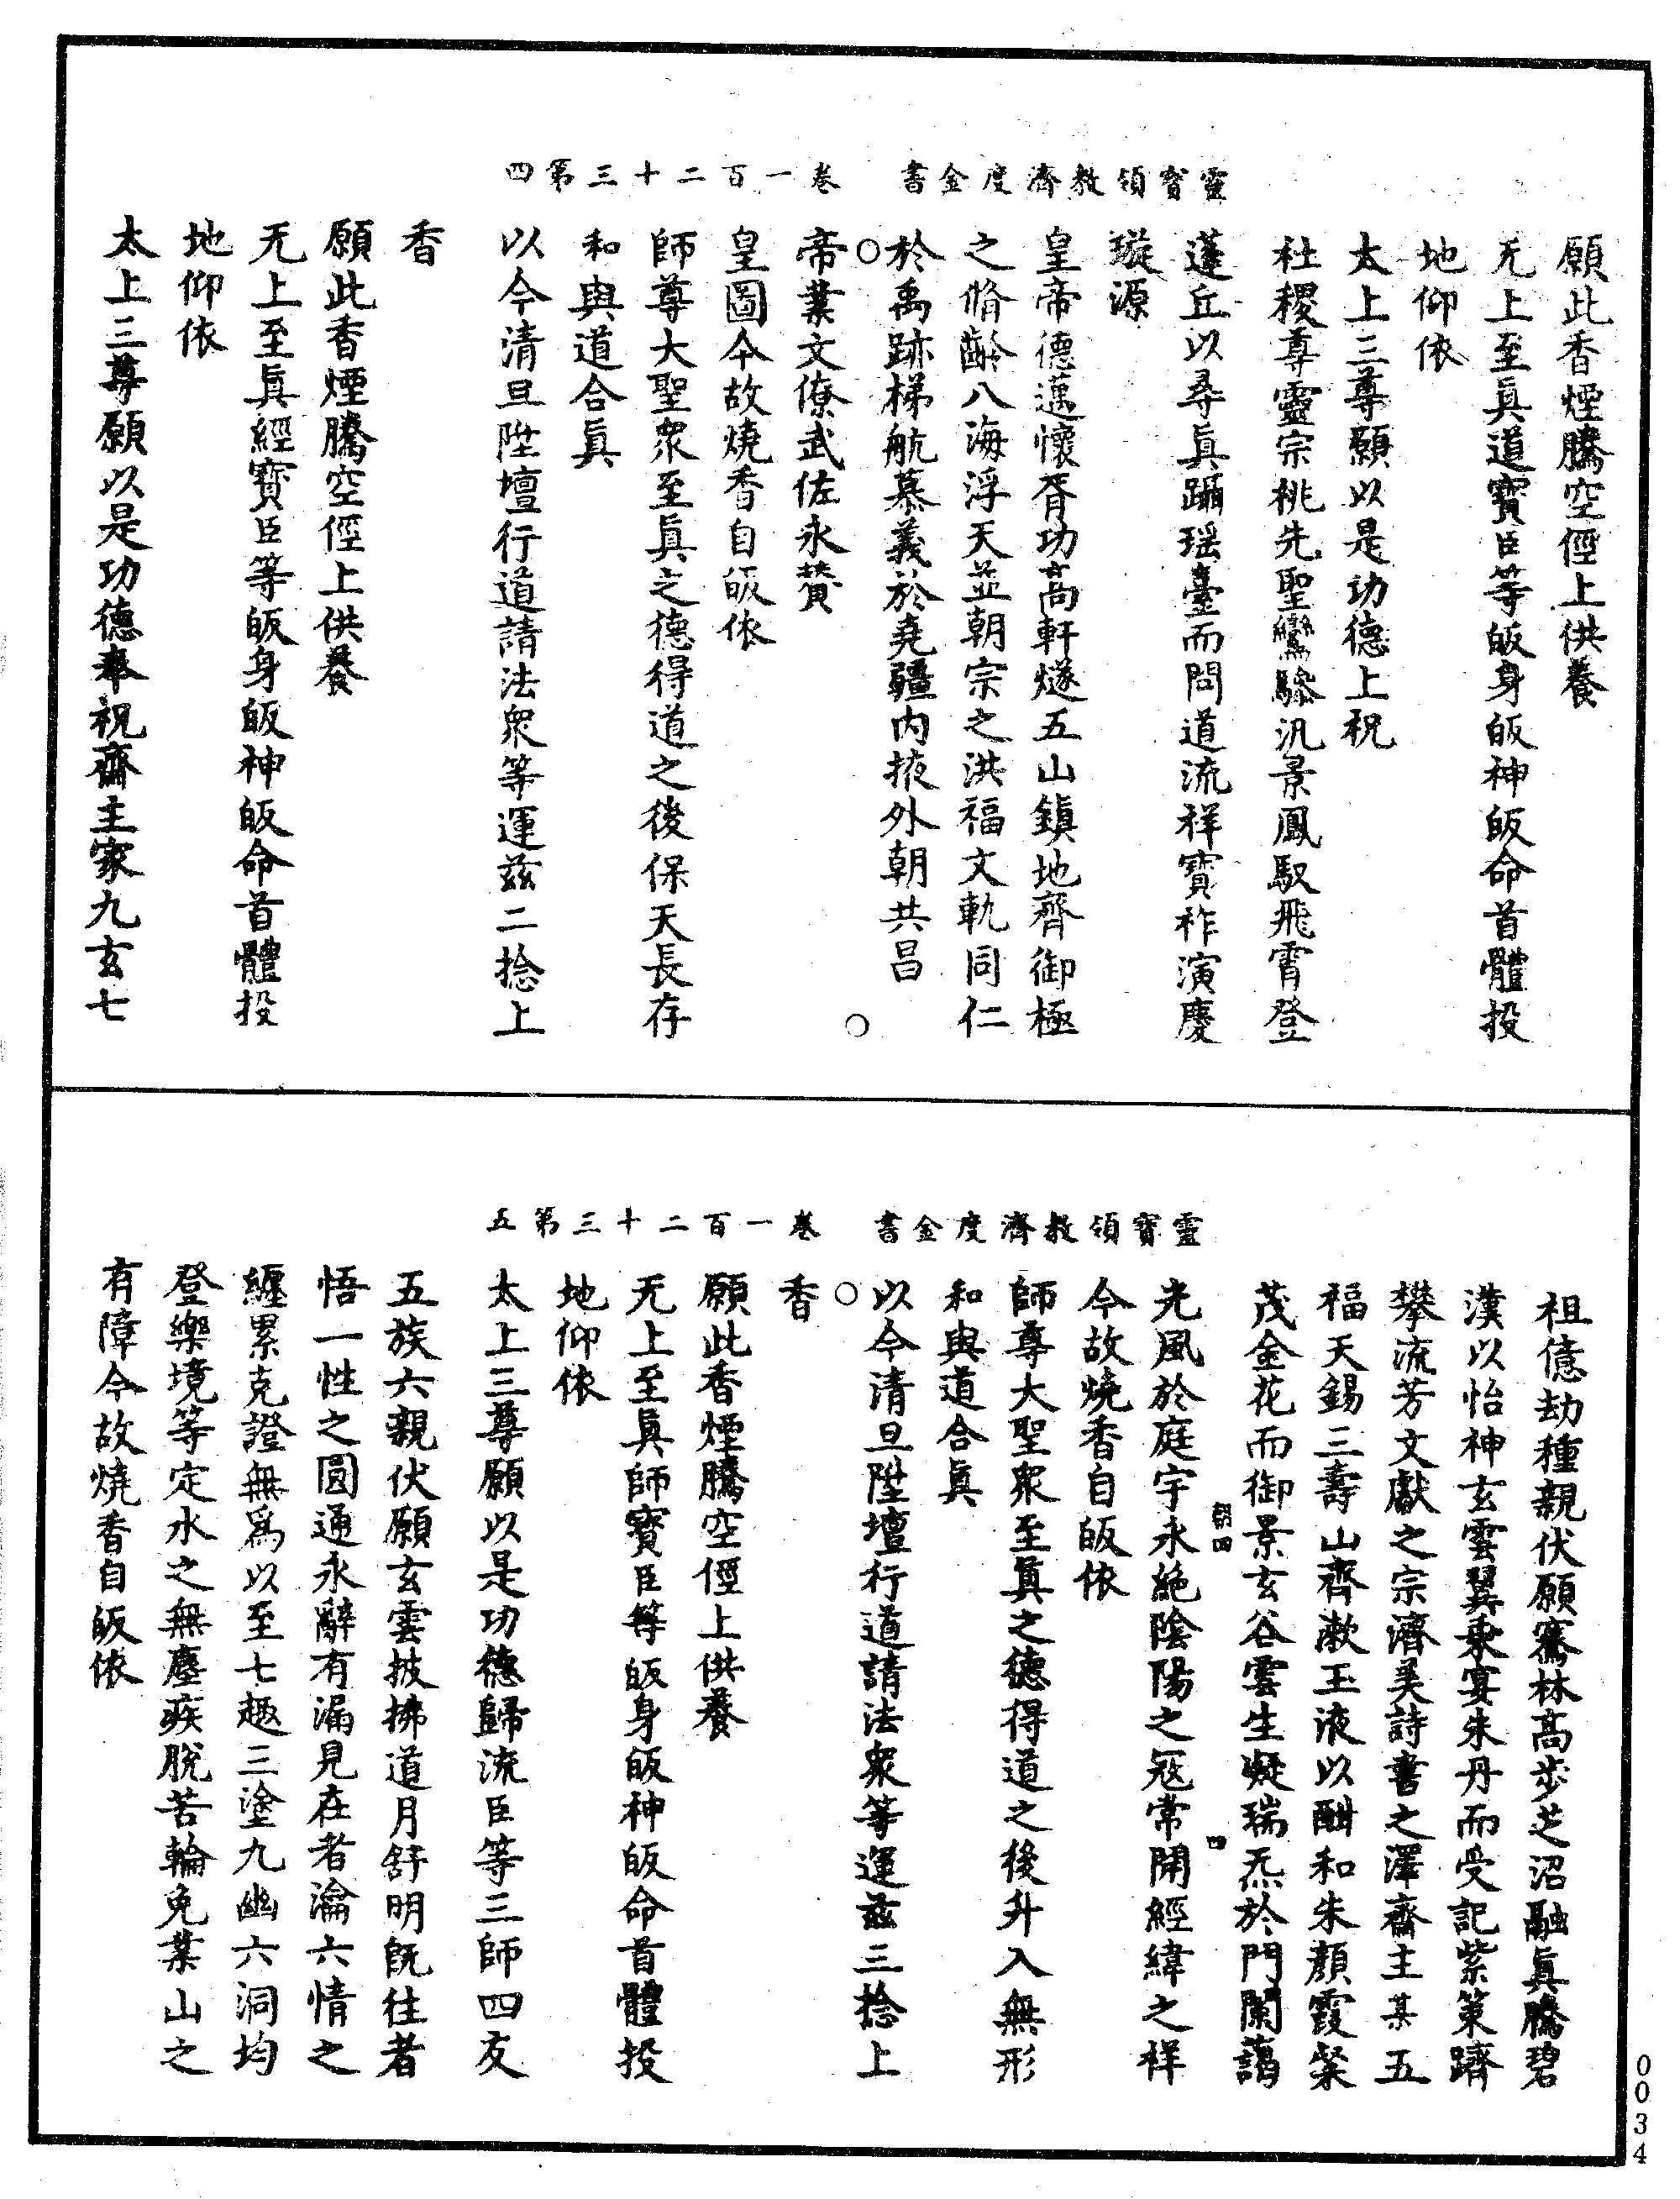 靈寶領教濟度金書 卷一百二十三第四
願此香煙騰空徑上供養
无上至眞道寶臣等皈身皈神皈命首體投
地仰依
太上三尊願以是功德上祝
社稷尊靈宗桃先聖鸞驂汎景鳳馭飛霄登
蓬丘以尋眞躡瑶臺而問道流祥寶祚演慶
璇源
皇帝德邁懷胥功高軒燧五山鎭地齊御極
之脩齡八海浮天並朝宗之洪福文軌同仁
於禹跡梯航慕義於堯疆内掖外朝共昌
○
○
帝業文僚武佐永賛
皇圖今故燒香自皈依
師尊大聖衆至眞之德得道之後保天長存
和與道合眞
以今清旦陞壇行道請法衆等運兹二捻上
香
願此香煙騰空徑上供養
无上至眞經寶臣等皈身皈神皈命首體投
地仰依
太上三尊願以是功德奉祝齋主家九玄七
靈寶領教濟度金書 卷一百二十三第五
祖億劫種親伏願騫林高步芝沼融眞騰碧
漢以怡神玄雲翼乘宴朱丹而受記紫策躋
攀流芳文獻之宗濟美詩書之澤齋主某五
福天錫三壽山齊漱玉液以酣和朱顏霞粲
茂金花而御景玄谷雲生凝瑞炁於門闌藹
朝四
四
光風於庭宇永絶陰陽之寇常開經緯之祥
今故燒香自皈依
師尊大聖衆至眞之德得道之後升入無形
和與道合眞
以今清旦陞壇行道請法衆等運兹三捻上
○
香
願此香煙騰空徑上供養
无上至眞師寶臣等皈身皈神皈命首體投
地仰依
太上三尊願以是功德歸流臣等三師四友
五族六親伏願玄雲披拂道月舒明旣往者
悟一性之圓通永辭有漏見在者瀹六情之
纏累克證無爲以至七趣三塗九幽六洞均
登樂境等定水之無塵疾脫苦輪免業山之
有障今故燒香自皈依
0034